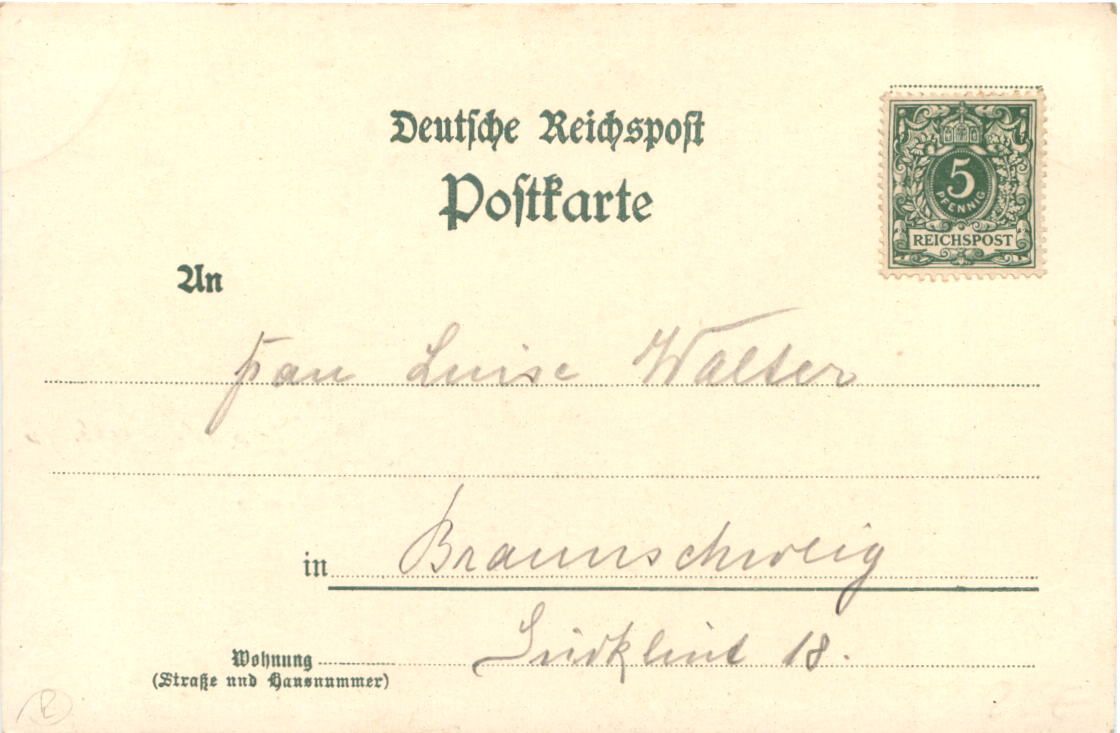 Deutsche Reichspost
Postkarte
5
PFENNIG
REICHSPOST
An
Frau Luise Walter
in Braunschweig
Südklint 18.
Wohnung
(Straße und Hausnummer)
R